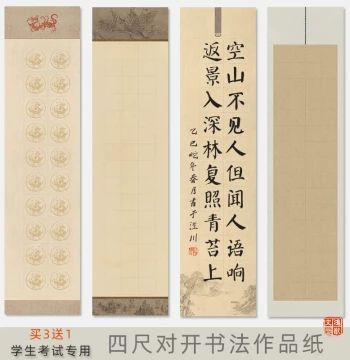 空山不见人但闻人语响
返景入深林复照青苔上
乙巳蛇年春月書于泾川
买3送1
学生考试专用
四尺对开书法作品纸